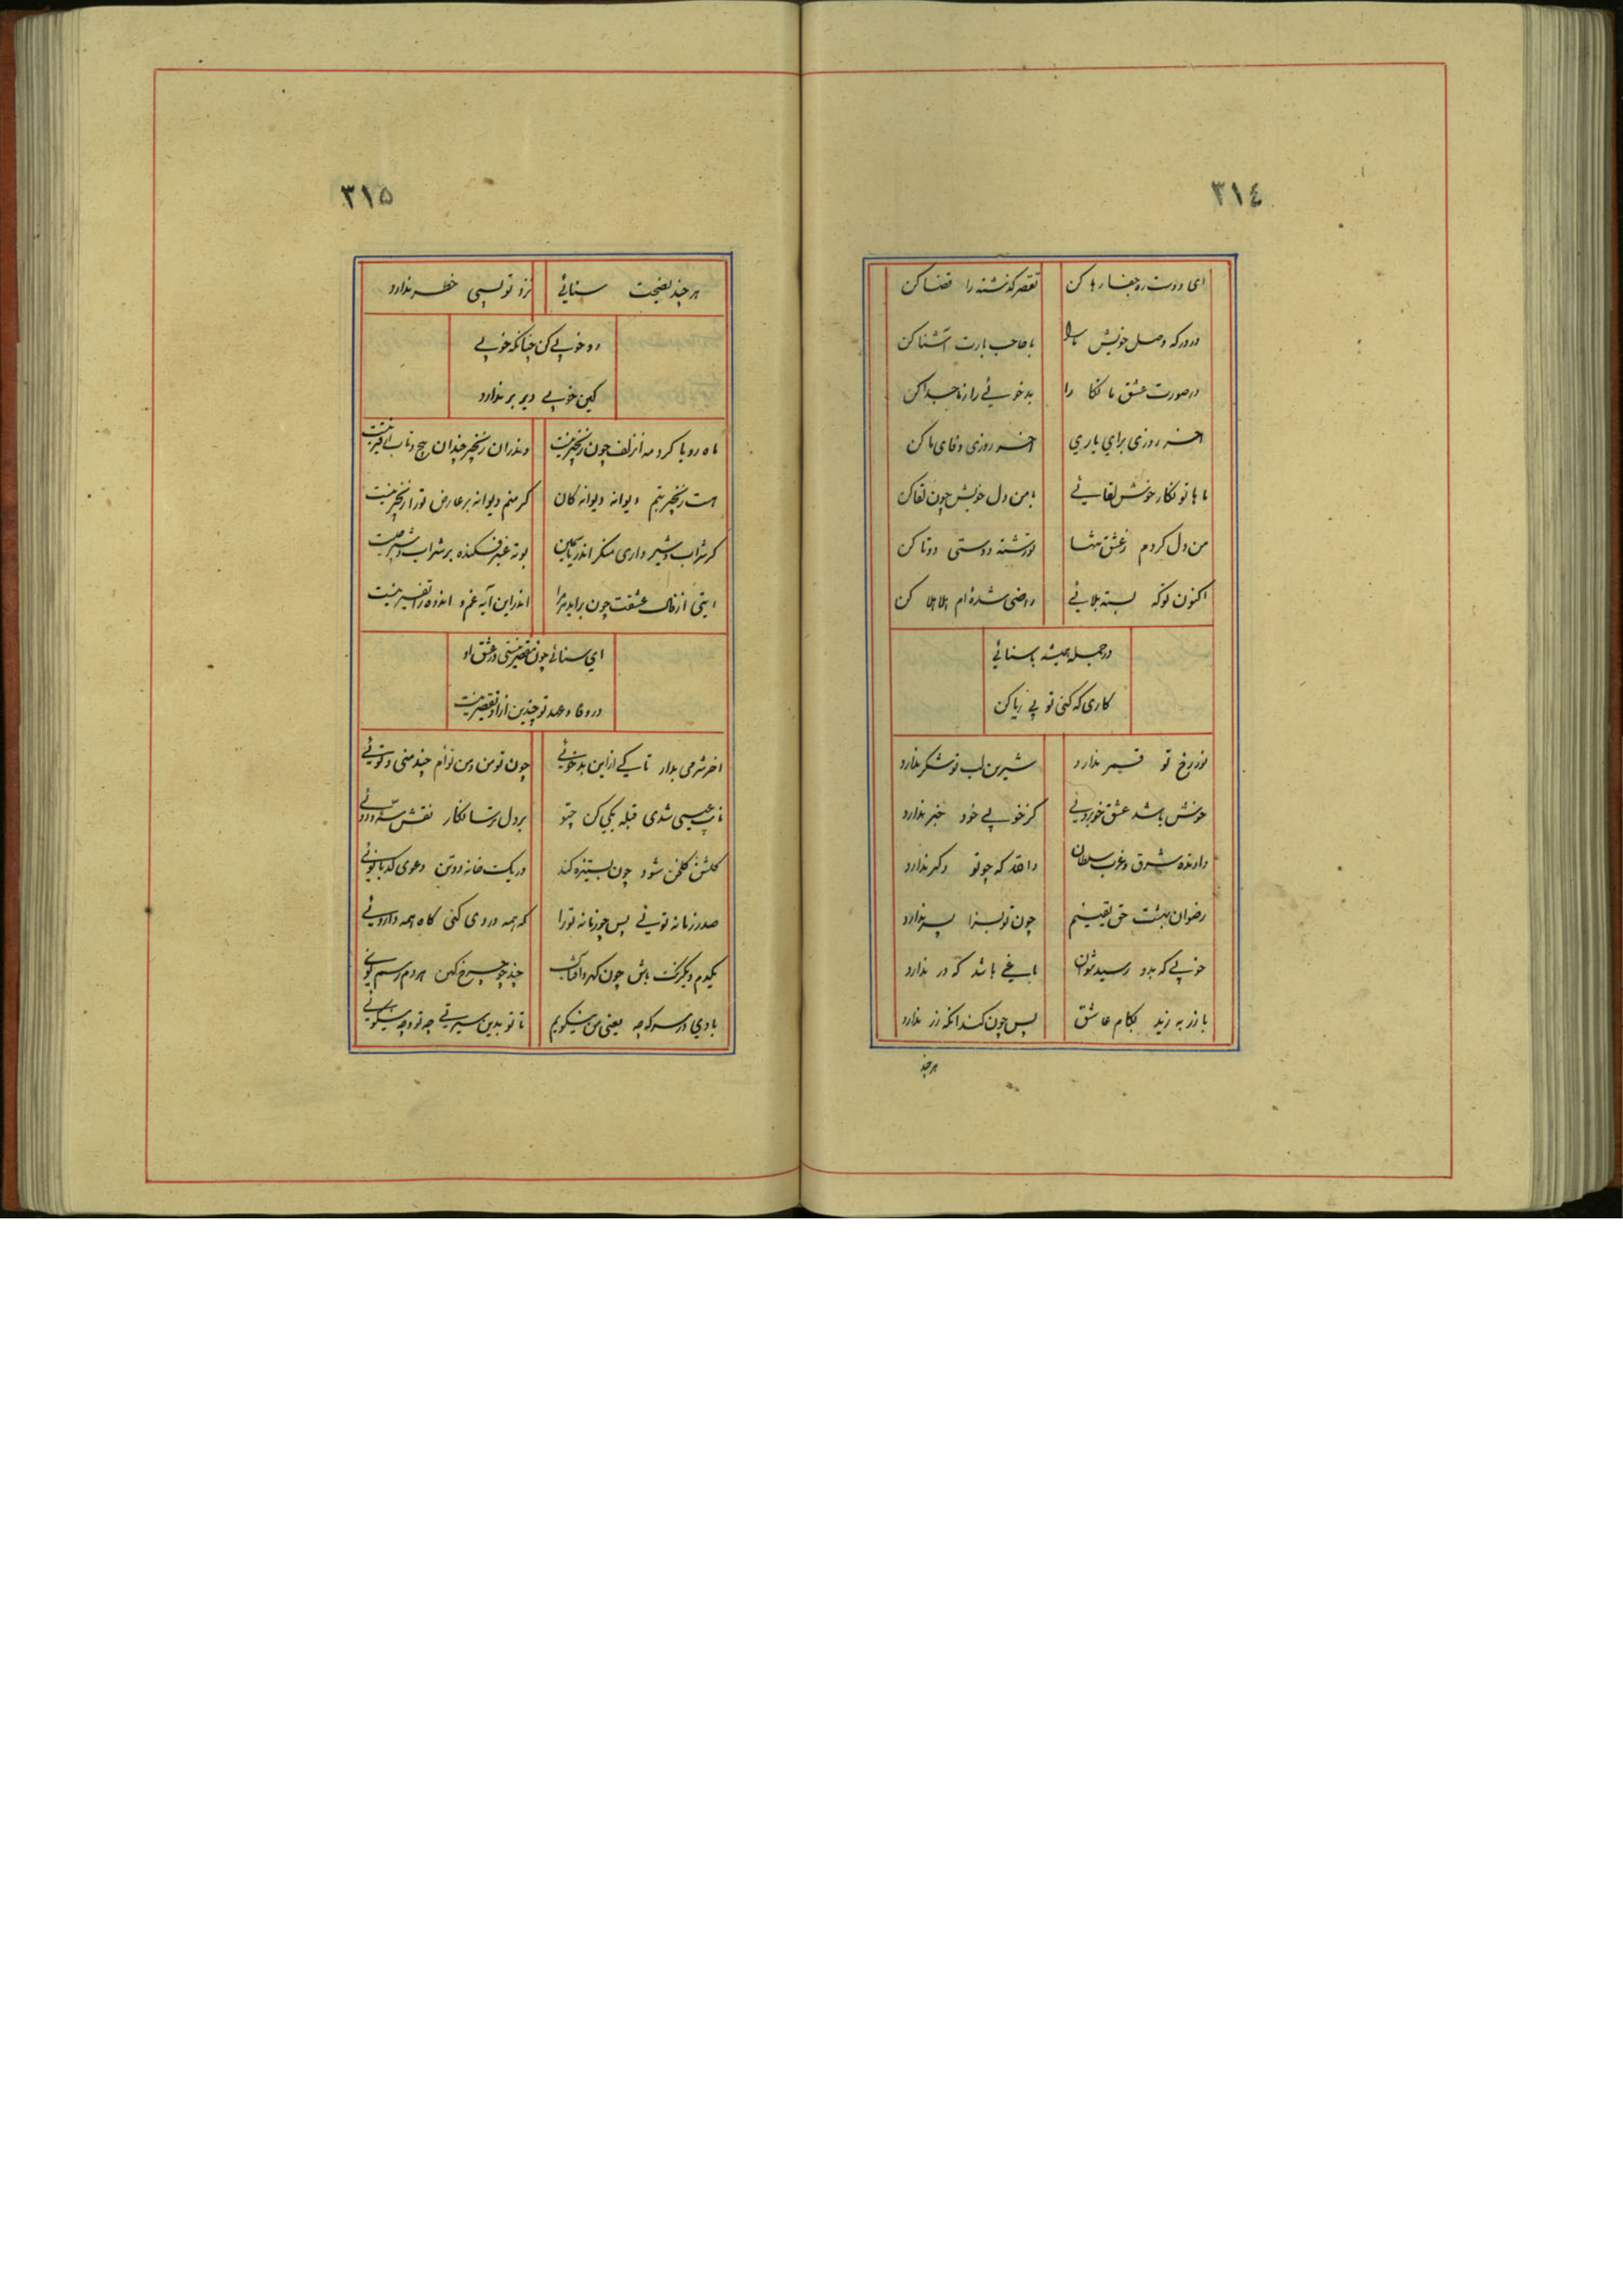 ٣١٤
ای دوست ره جفا رها کن تقصیر گذشته را قضا کن
در درکه وصل خویش ما را با حاجب بارت آشنا کن
در صورت عشق ما نکا را بدخوئی را ز ما جدا کن
اخر روزی برای یاری اخر روزی وفای ما کن
ما با تو نکار خوش لقائی با من دل خویش چون لقا کن
من دل کردم ز عشق یکتا تو رشته دوستی دوتا کن
اکنون توکه بسته بلائی راضی شده‌ام هلا هلا کن
در جمله همیشه با سنائی
کاری که کنی تو بی ریا کن
نور رخ تو قمر ندارد شیرین لب تو شکر ندارد
خوش باشد عشق خوبروئی کز خوبی خود خبر ندارد
دارنده شرق و غرب سلطان والله که چو تو دکر ندارد
رضوان بهشت حق یقینم چون تو بسزا پسر ندارد
خوبی که بدو رسید نتوان باغی باشد که در ندارد
با زر به زید بکام عاشق پس چون کند انکه زر ندارد
هر چند
٣١٥
هر چند نصیحت سنائی نزد تو بسی خطر ندارد
رو خوبی کن چنانکه خوبی
کین خوبی دیر بر ندارد
ماه رویا کرد مه از زلف چون زنجیر نیست وندران زنجیر چندان پیچ و تاب از قیر نیست
هست زنجیر یتیم دیوانه دیوانه کان کر منم دیوانه بر عارض تو را زنجیر نیست
کر شراب و شیر داری منکر اندر یاسمین توده عنبر فکنده بر شراب و شیر چیست
ایتی از فال عشقت چون براید مر مرا اندر این آیه غم و اندوه را تفسیر نیست
ای سنائی چون مقصر نیستی در عشق او
در وفا و عهد تو چندین از او تقصیر نیست
اخر شرمی بدار تا کی از این بدخوئی چون تو من و من توام چند منی و توئی
نایب عیسی شدی قبله یکی کن چنو بر دل ترسا نکار نقش دوئی
کلشن کلخن شود چون بستیزه کند در یکت خانه دو تن دعوی کدبانوئی
صدر زمانه توئی پس چو زمانه تو را که همه دردی کنی کاه همه داروئی
یکدم و یکرنک باش چون کهر و افتاب چند چو چرخ کهن هر دم رسم نوئی
با دی در سر که چه یعنی من نیکویم تا تو بدین سیرتی چه تو و چه نیکوئی